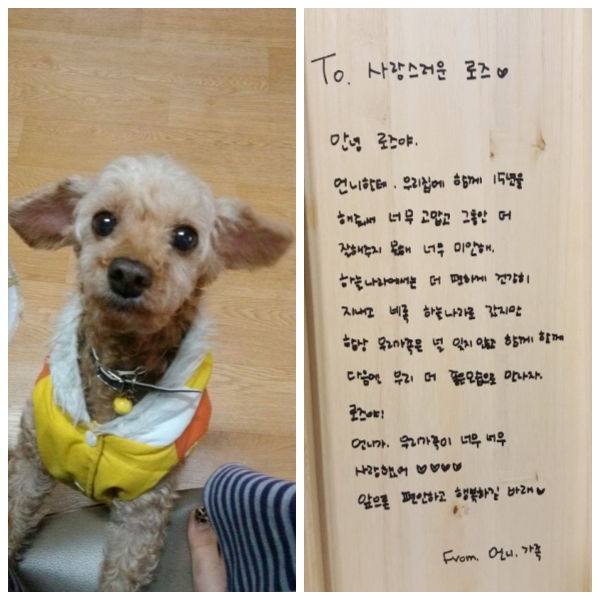 To. 사랑스러운 로즈♥
안녕 로즈야.
언니한테. 우리집에 함께 15년을
해줘서 너무 고맙고 그동안 더
잘해주지 못해 너무 미안해.
하늘나라에서는 더 편하게 건강히
지내고 비록 하늘나라로 갔지만
항상 우리가족은 널 잊지 않고 함께 함께
다음엔 우리 더 좋은모습으로 만나자.
로즈야!
언니가. 우리가족이 너무 너무
사랑했어 ♥♥♥♥
앞으론 편안하고 행복하길 바래♥
From. 언니. 가족